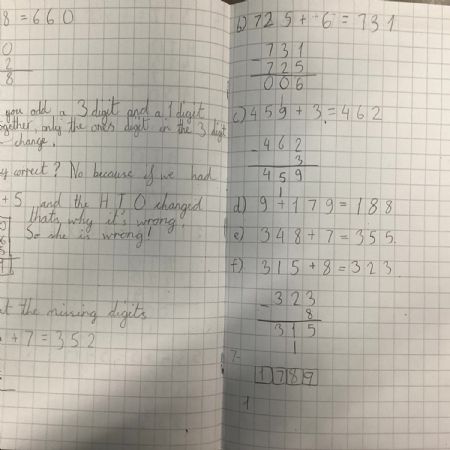 8 = 660
0
2
8
you add a 3 digit and a 1 digit
ogether, only the ones digit in the 3 digit
change.
y correct? No because if we had
+ 5 and the HTO changed
thats why it's wrong!
So she is wrong!
t the missing digits
+ 7 = 352
b) 725 + 6 = 731
- 731
725
006
c) 459 + 3 = 462
- 462
3
459
1
d) 9 + 179 = 188
e) 348 + 7 = 355
f) 315 + 8 = 323
- 323
8
315
1
7-
1789
1